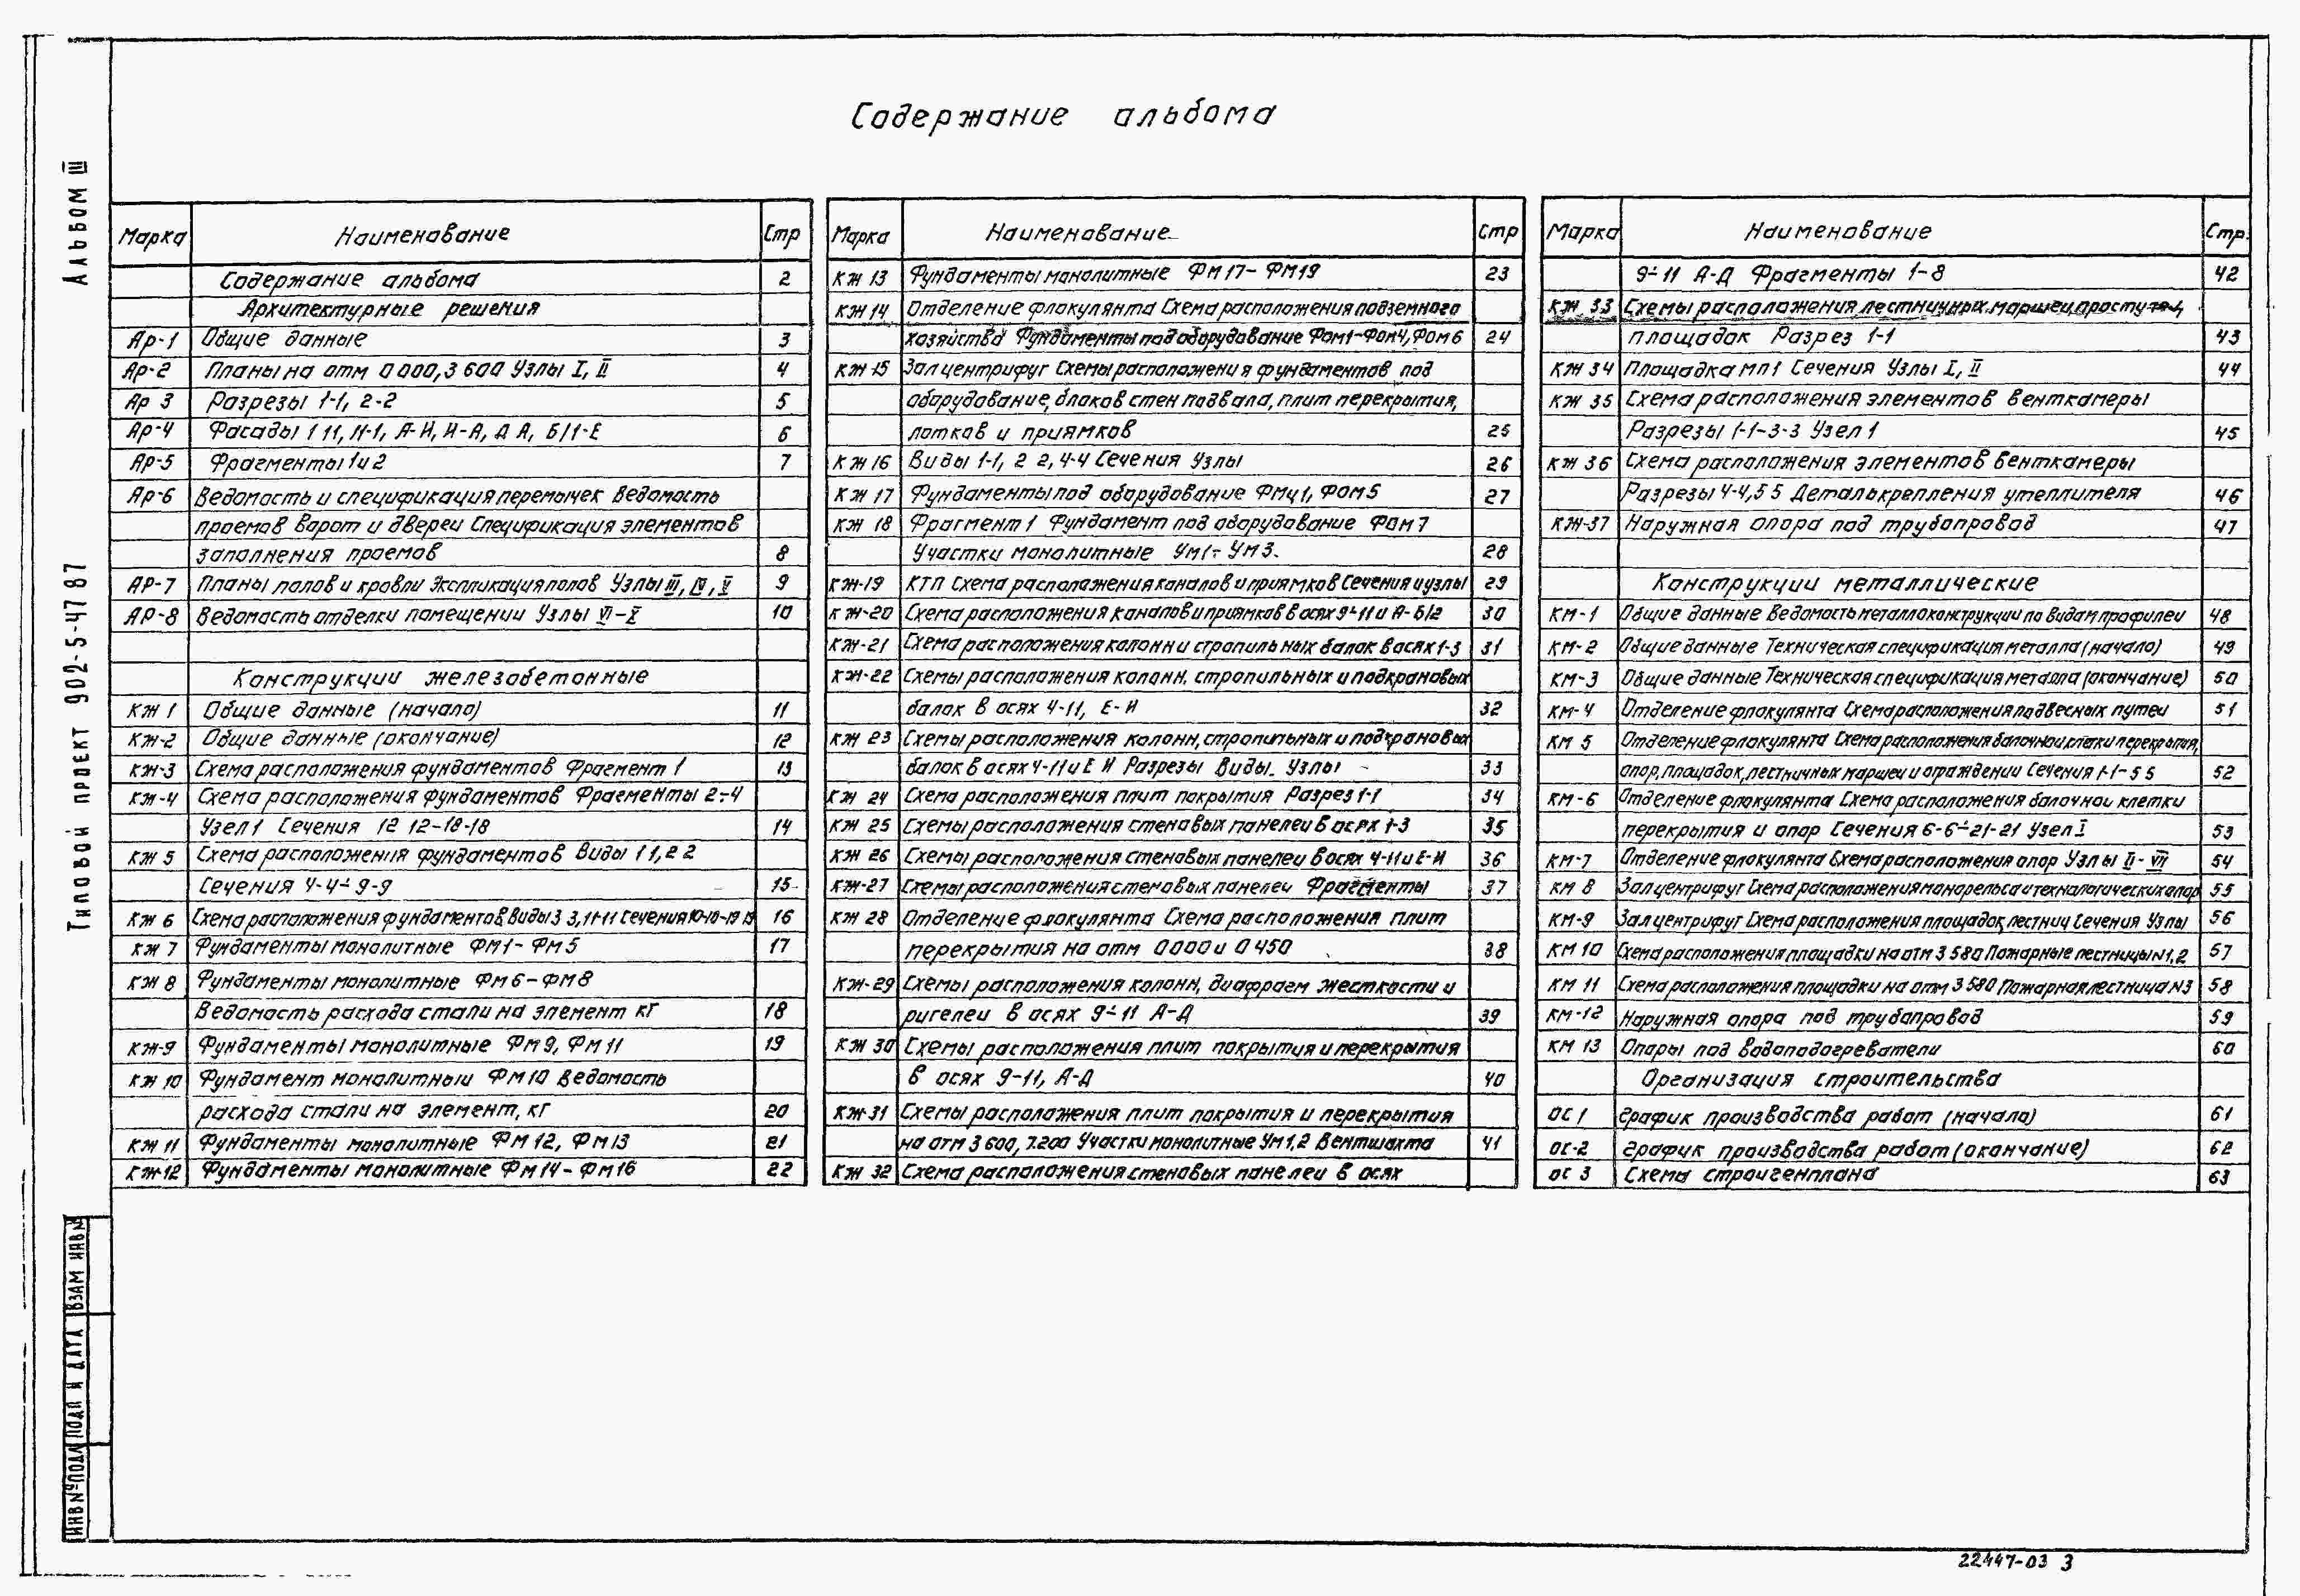 Содержание альбома
Альбом III
Типовой проект 902-5-47 87
Марка Наименование Стр
Содержание альбома 2
Архитектурные решения
Ар-1 Общие данные 3
Ар-2 Планы на отм 0 000, 3 600 Узлы I, II 4
Ар 3 Разрезы 1-1, 2-2 5
Ар-4 Фасады 1 11, 11-1, А-И, И-А, Д А, Б/1-Е 6
Ар-5 Фрагменты 1 и 2 7
Ар-6 Ведомость и спецификация перемычек Ведомость
проемов ворот и дверей Спецификация элементов
заполнения проемов 8
АР-7 Планы полов и кровли Экспликация полов Узлы III, IV, V 9
АР-8 Ведомость отделки помещении Узлы VI-X 10
Конструкции железобетонные
КЖ 1 Общие данные (начало) 11
КЖ-2 Общие данные (окончание) 12
КЖ-3 Схема расположения фундаментов Фрагмент 1 13
КЖ-4 Схема расположения фундаментов Фрагменты 2÷4
Узел 1 Сечения 12 12-18-18 14
КЖ 5 Схема расположения фундаментов Виды 1 1, 2 2
Сечения 4-4÷9-9 15
КЖ 6 Схема расположения фундаментов Виды 3 3, 11-11 Сечения 10-10-19 19 16
КЖ 7 Фундаменты монолитные ФМ1-ФМ5 17
КЖ 8 Фундаменты монолитные ФМ6-ФМ8
Ведомость расхода стали на элемент кг 18
КЖ-9 Фундаменты монолитные ФМ9, ФМ11 19
КЖ 10 Фундамент монолитный ФМ10 Ведомость
расхода стали на элемент, кг 20
КЖ 11 Фундаменты монолитные ФМ12, ФМ13 21
КЖ-12 Фундаменты монолитные ФМ14-ФМ16 22
Марка Наименование Стр
КЖ 13 Фундаменты монолитные ФМ17-ФМ19 23
КЖ 14 Отделение флокулянта Схема расположения подземного
хозяйства Фундаменты под оборудование Фом1-Фом4, Фом6 24
КЖ-15 Зал центрифуг Схемы расположения фундаментов под
оборудование, блоков стен подвала, плит перекрытия,
лотков и приямков 25
КЖ 16 Виды 1-1, 2 2, 4-4 Сечения Узлы 26
КЖ 17 Фундаменты под оборудование ФМч1, ФОМ5 27
КЖ 18 Фрагмент 1 Фундамент под оборудование ФОМ7
Участки монолитные УМ1÷УМ3. 28
КЖ-19 КТП Схема расположения каналов и приямков Сечения и узлы 29
КЖ-20 Схема расположения каналов и приямков в осях 9÷11 и А-Б/2 30
КЖ-21 Схема расположения колонн и стропильных балок в осях 1-3 31
КЖ-22 Схемы расположения колонн, стропильных и подкрановых
балок в осях 4-11, Е-И 32
КЖ 23 Схемы расположения колонн, стропильных и подкрановых
балок в осях 4-11 и Е И Разрезы Виды. Узлы 33
КЖ 24 Схема расположения плит покрытия Разрез 1-1 34
КЖ 25 Схемы расположения стеновых панелей в осях 1-3 35
КЖ 26 Схемы расположения стеновых панелей в осях 4-11 и Е-И 36
КЖ-27 Схемы расположения стеновых панелей Фрагменты 37
КЖ 28 Отделение флокулянта Схема расположения плит
перекрытия на отм 0 000 и 0 450 38
КЖ-29 Схемы расположения колонн, диафрагм жесткости и
ригелей в осях 9÷11 А-Д 39
КЖ 30 Схемы расположения плит покрытия и перекрытия
в осях 9-11, А-Д 40
КЖ-31 Схемы расположения плит покрытия и перекрытия
на отм 3 600, 7.200 Участки монолитные УМ 1, 2 Вентшахта 41
КЖ 32 Схема расположения стеновых панелей в осях
Марка Наименование Стр.
9÷11 А-Д Фрагменты 1-8 42
КЖ 33 Схемы расположения лестничных маршей, проступей,
площадок Разрез 1-1 43
КЖ 34 Площадка МП1 Сечения Узлы I, II 44
КЖ 35 Схема расположения элементов венткамеры
Разрезы 1-1-3-3 Узел 1 45
КЖ 36 Схема расположения элементов венткамеры
Разрезы 4-4, 5 5 Деталь крепления утеплителя 46
КЖ-37 Наружная опора под трубопровод 47
Конструкции металлические
КМ-1 Общие данные Ведомость металлоконструкции по видам профилей 48
КМ-2 Общие данные Техническая спецификация металла (начало) 49
КМ-3 Общие данные Техническая спецификация металла (окончание) 50
КМ-4 Отделение флокулянта Схема расположения подвесных путей 51
КМ 5 Отделение флокулянта Схема расположения балочной клетки перекрытия,
опор, площадок, лестничных маршей и ограждении Сечения 1-1-5 5 52
КМ-6 Отделение флокулянта Схема расположения балочной клетки
перекрытия и опор Сечения 6-6÷21-21 Узел I 53
КМ-7 Отделение флокулянта Схема расположения опор Узлы II-VII 54
КМ 8 Зал центрифуг Схема расположения монорельса и технологических опор 55
КМ-9 Зал центрифуг Схема расположения площадок, лестниц Сечения Узлы 56
КМ 10 Схема расположения площадки на отм 3 580 Пожарные лестницы N1, 2 57
КМ 11 Схема расположения площадки на отм 3 580 Пожарная лестница N3 58
КМ-12 Наружная опора под трубопровод 59
КМ 13 Опоры под водоподогреватели 60
Организация строительства
ОС 1 График производства работ (начало) 61
ОС-2 График производства работ (окончание) 62
ОС 3 Схема стройгенплана 63
ИНВ № ПОДЛ ПОДП И ДАТА ВЗАМ ИНВ №
22447-03 3